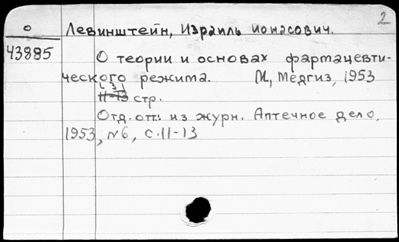 2
о Левинштейн, Израиль Ионасович.
43885 О теории и основах фармацевти-
ческого режима. М, Медгиз, 1953
11-13 стр.
Отд. отт. из журн. Аптечное дело,
1953, №6, с. 11-13